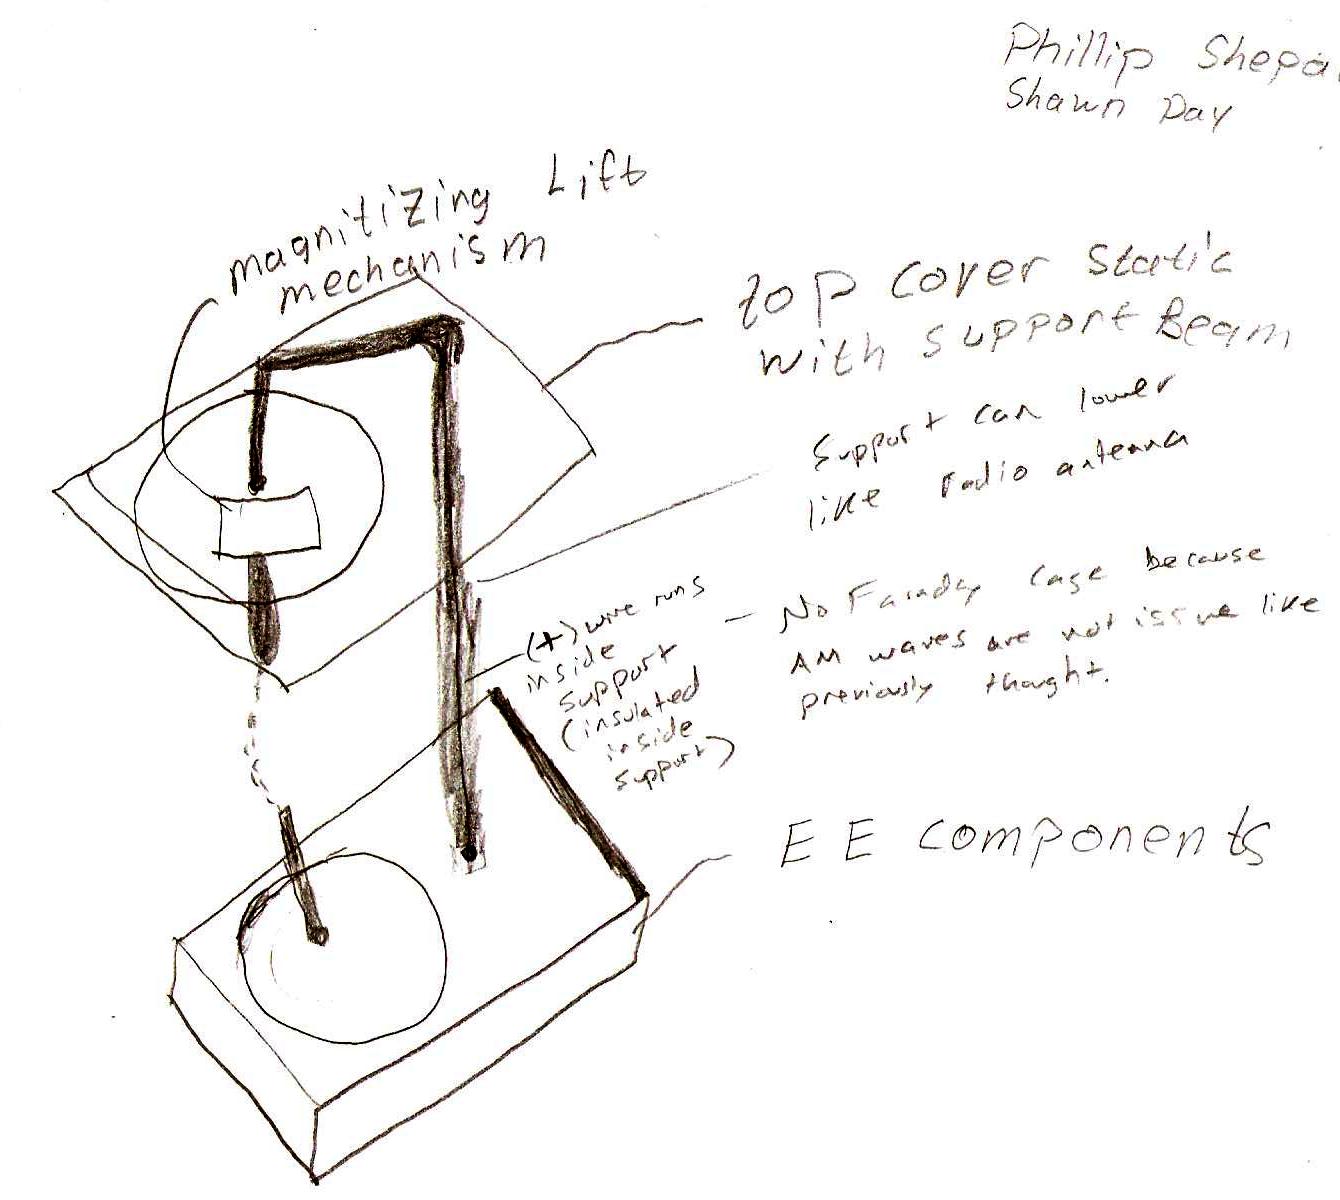 Phillip
Shawn Day
magnitizing Lift
mechanism
top cover static
with support Beam
Support can lower
like radio antenna
(+) wire runs
inside
support
(insulated
inside
support)
- No Faraday cage because
AM waves are not issue like
previously thought.
EE components